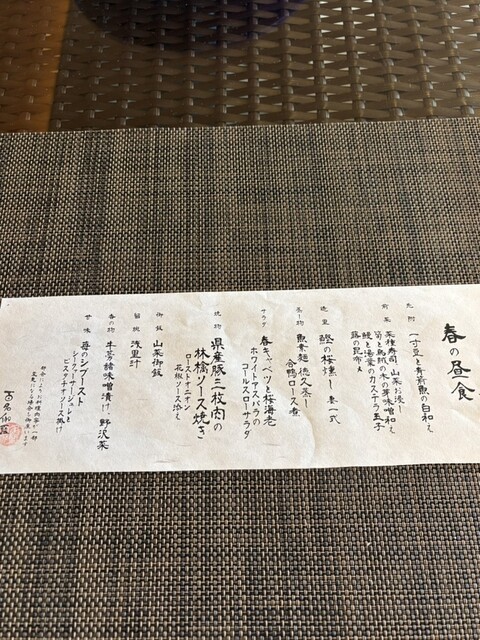 春の昼食
先附
一寸豆と青新魚の白和え
前菜
菜種寿司 山菜お浸し
筍と鳥賊の木の芽味噌和え
鰻と湯葉のカステラ玉子
蕗の昆布〆
造里
鰹の桜燻し 妻一式
蒸し物
魚素麺 徳久蒸し
合鴨ロース煮
サラダ
春キャベツと桜海老
ホワイトアスパラの
コールスローサラダ
焼物
県産豚三枚肉の
林檎ソース焼き
ローストオニオン
花椒ソース添え
御飯
山菜御飯
留椀
浅里汁
香の物
牛蒡諸味噌漬け、野沢菜
甘味
苺のシブースト
シークヮーサージュレと
ピスタチオソース掛け